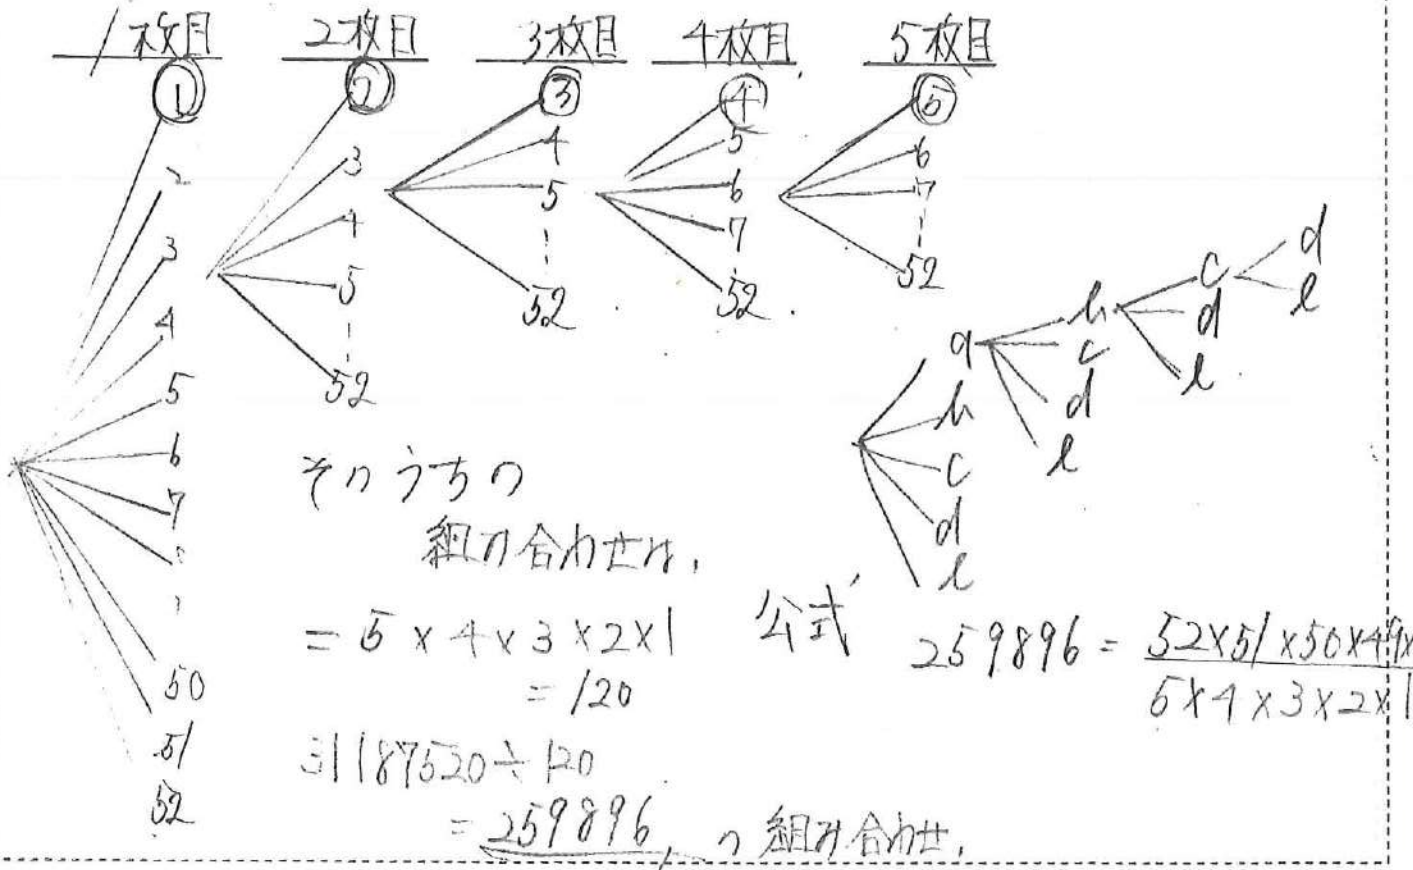 1枚目 2枚目 3枚目 4枚目 5枚目
① ② ③ ④ ⑤
2 3 4 5 6
3 4 5 6 7
4 5 52 7 52
5 52 52
6
7
50
51
52
a b c d
b c d e
c d e
d e
e
そのうちの
組み合わせは、
= 5×4×3×2×1
= 120
31187520÷120
= 259896 の組み合わせ.
公式
259896 = 52×51×50×49×
5×4×3×2×1